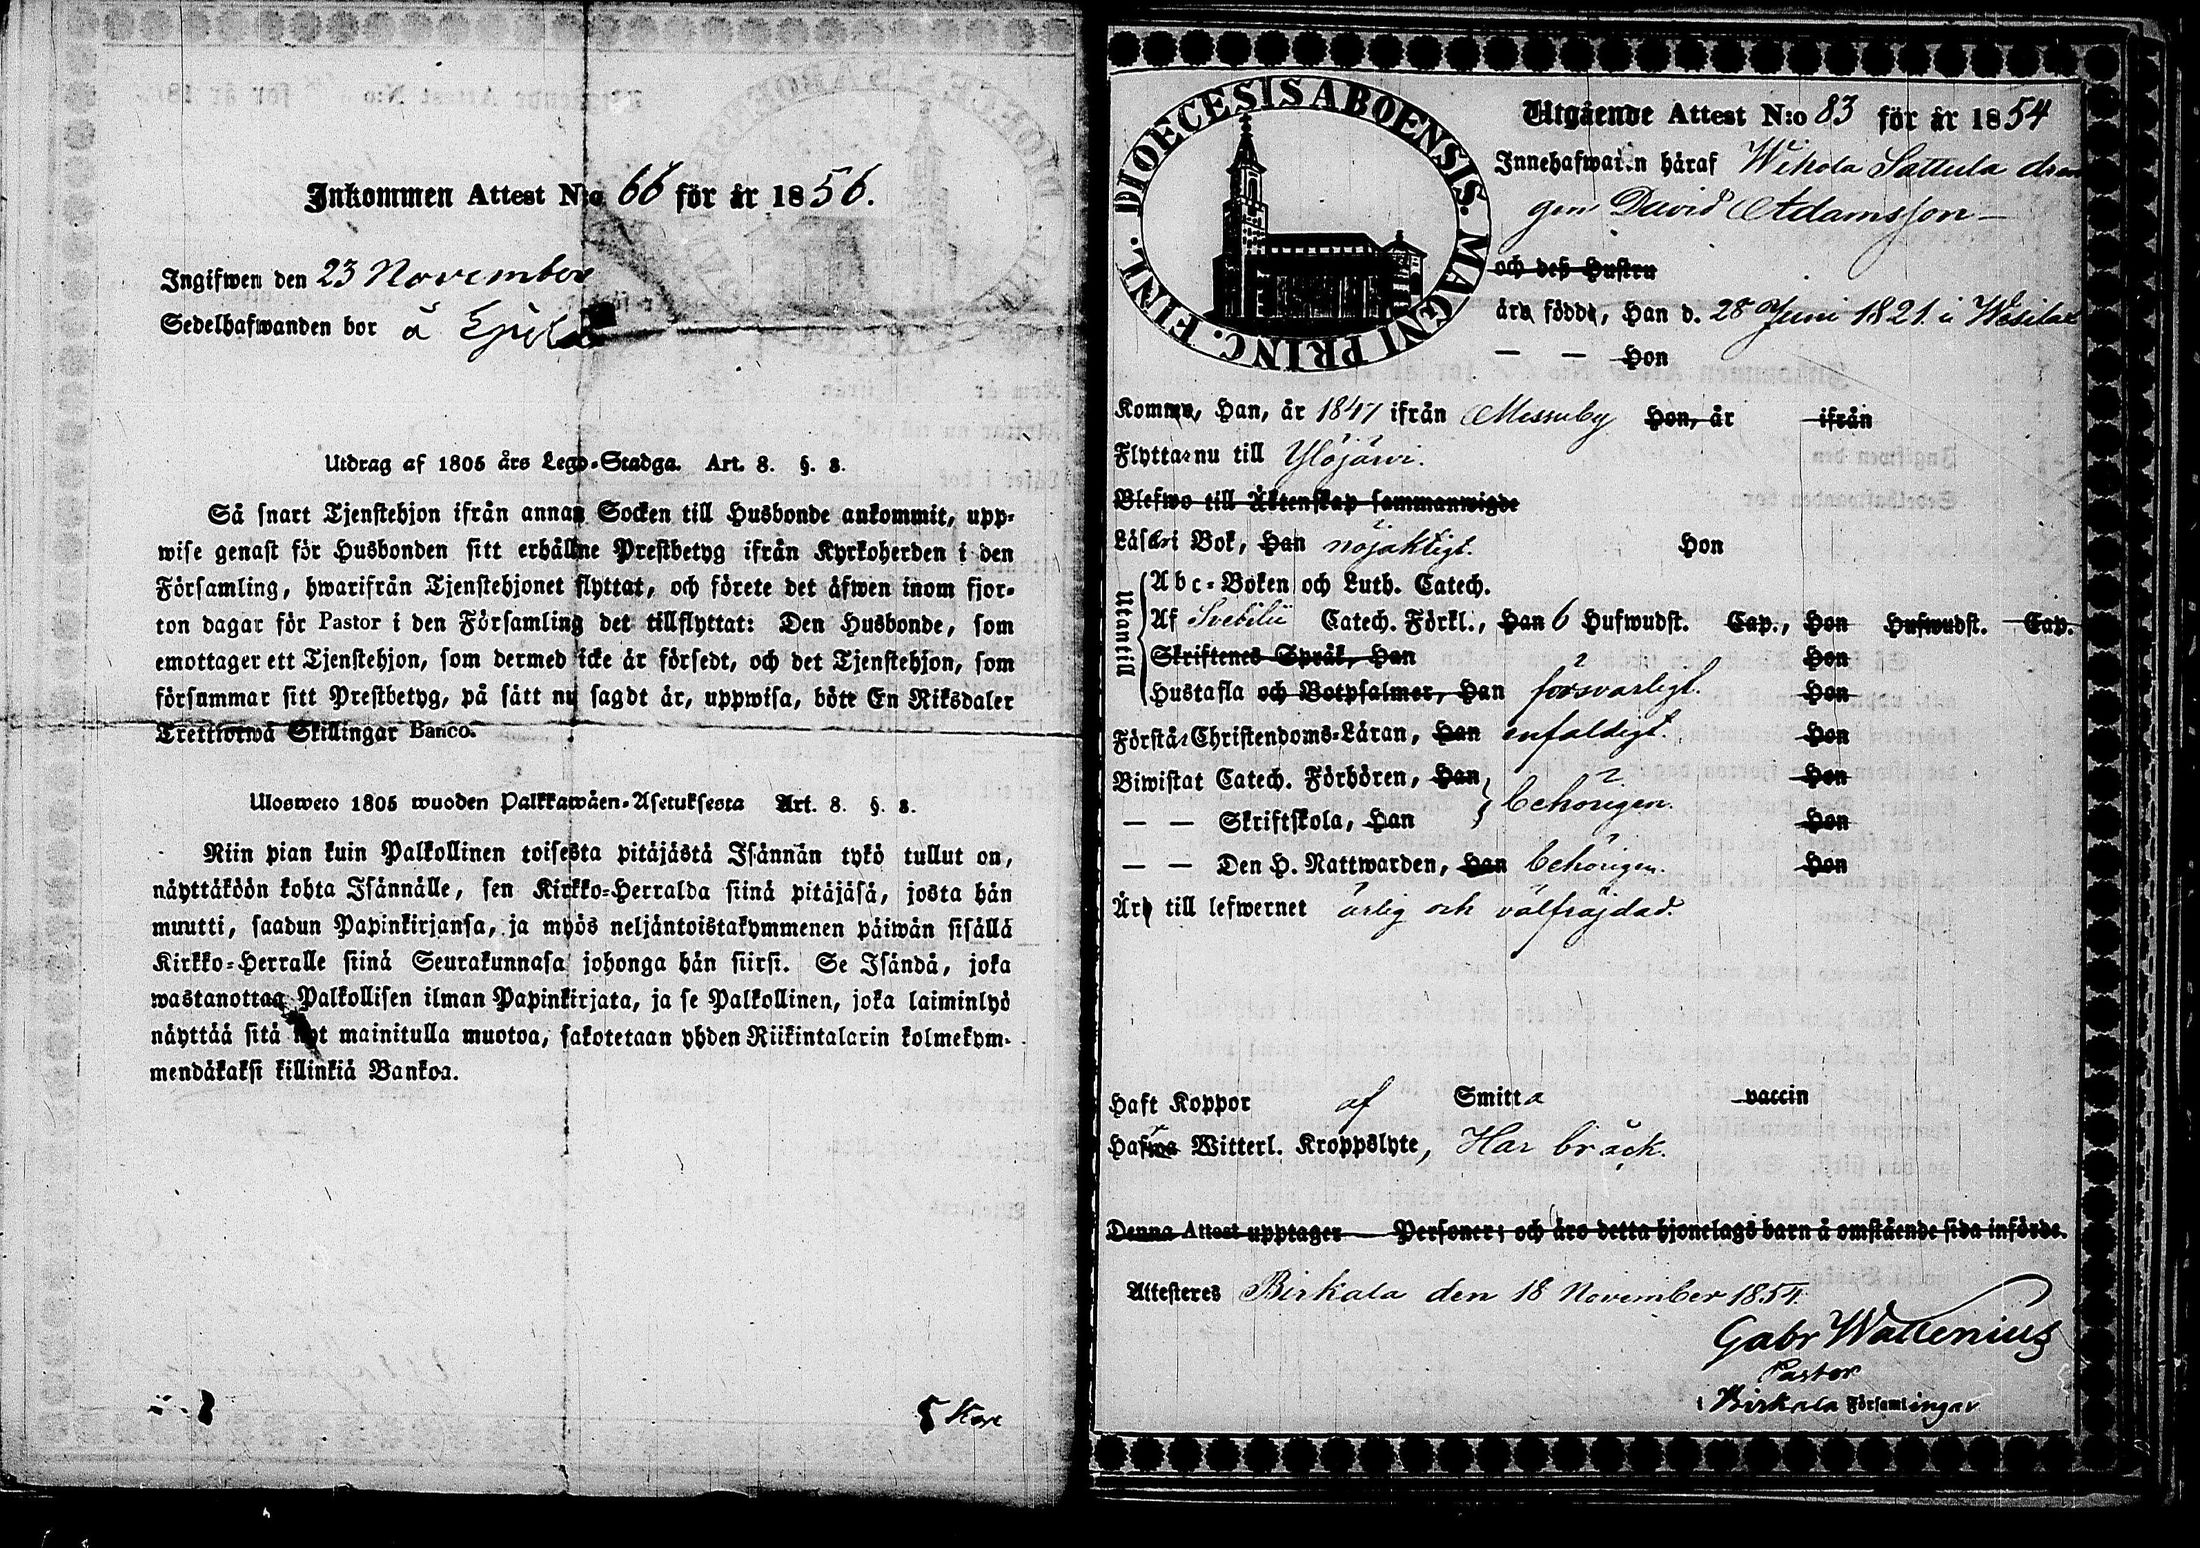 Inkommen Attest N:o 66 för år 1856.
Ingifwen den 23 November
Sedelhafwanden bor å
Utdrag af 1805 års Lego-Stadga. Art. 8. §. 8.
Så snart Tjenstehjon ifrån annan Socken till Husbonde ankommit, upp-
wise genast för Husbonden sitt erhållne Prestbetyg ifrån Kyrkoherden i den
Församling, hwarifrån Tjenstehjonet flyttat, och förete det äfwen inom fjor-
ton dagar för Pastor i den Församling det tillflyttat: Den Husbonde, som
emottager ett Tjenstehjon, som dermed icke är försedt, och det Tjenstehjon, som
försummar sitt Prestbetyg, på sätt nu sagdt är, uppwisa, böte En Riksdaler
Trettiotwå Skillingar Banco.
Ulosweto 1805 wuoden Palkkawäen-Asetuksesta Art. 8. §. 8.
Niin pian kuin Palkollinen toisesta pitäjästä Isännän tykö tullut on,
näyttäköön kohta Isännälle, sen Kirkko-Herralda siinä pitäjäsä, josta hän
muutti, saadun Papinkirjansa, ja myös neljäntoistakymmenen päiwän sisällä
Kirkko-Herralle siinä Seurakunnasa johonga hän siirsi. Se Isändä, joka
wastanottaa Palkollisen ilman Papinkirjata, ja se Palkollinen, joka laiminlyö
näyttää sitä nyt mainitulla muotoa, sakotetaan yhden Riikintalarin kolmekym-
mendäkaksi killinkiä Bankoa.
DIOECESIS ABOENSIS. MAGNI PRINC. FINL.
Utgående Attest N:o 83 för år 1854
Innehafwaren häraf Wihola Sattula drän
gen David Adamsson
och deß Hustru
äro födde, Han d. 28 Juni 1821 i
— — Hon
Komne, Han, år 1847 ifrån Messuby Hon, år ifrån
Flyttar nu till Ylöjärvi.
Blefwo till Äktenskap sammanwigde
Läser i Bok, Han nöjaktigt. Hon
Utantill
Abc-Boken och Luth. Catech.
Af Svebilii Catech. Förkl., Han 6 Hufwudst. Cap., Hon Hufwudst. Cap.
Skriftenes Språk, Han Hon
Hustafla och Botpsalmer, Han försvarligt. Hon
Förstår Christendoms-Läran, Han enfaldigt. Hon
Biwistat Catech. Förhören, Han Hon
behörigen.
— — Skriftskola, Han Hon
— — Den H. Nattwarden, Han behörigen. Hon
Är till lefwernet ärlig och välfräjdad.
Haft Koppor af Smitta vaccin
Witterl. Kroppslyte, Har bråck.
Denna Attest upptager — Personer; och äro detta hjonelags barn å omstående sida införde.
Attesteres Birkala den 18 November 1854.
Gabr Wallenius
Pastor
i Birkala Församlingar